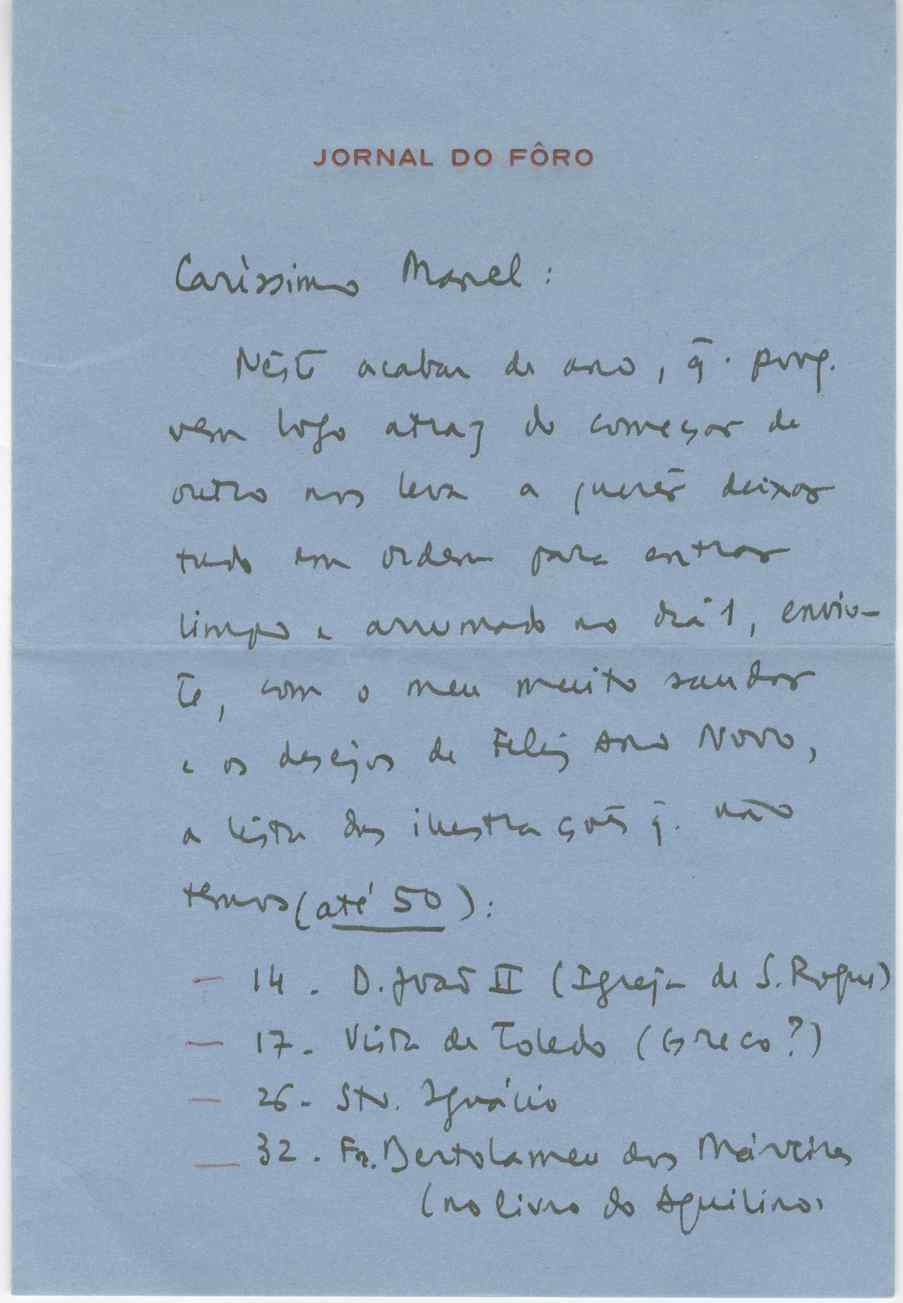 JORNAL DO FÔRO
Caríssimo Manel:
Nêste acabar de ano, q. porq.
vem logo atraz do começar de
outro nos leva a querer deixar
tudo em ordem para entrar
limpo e arrumado no dia 1, envio-
te, com o meu muito saudar
e os desejos de Feliz Ano Novo,
a lista das ilustrações q. não
temos (até 50):
— 14. D. João II (Igreja de S. Roque)
— 17. Vista de Toledo (Greco?)
— 26. Sto. Ignácio
— 32. Fr. Bertolameu dos Mártires
(no livro do Aquilino)